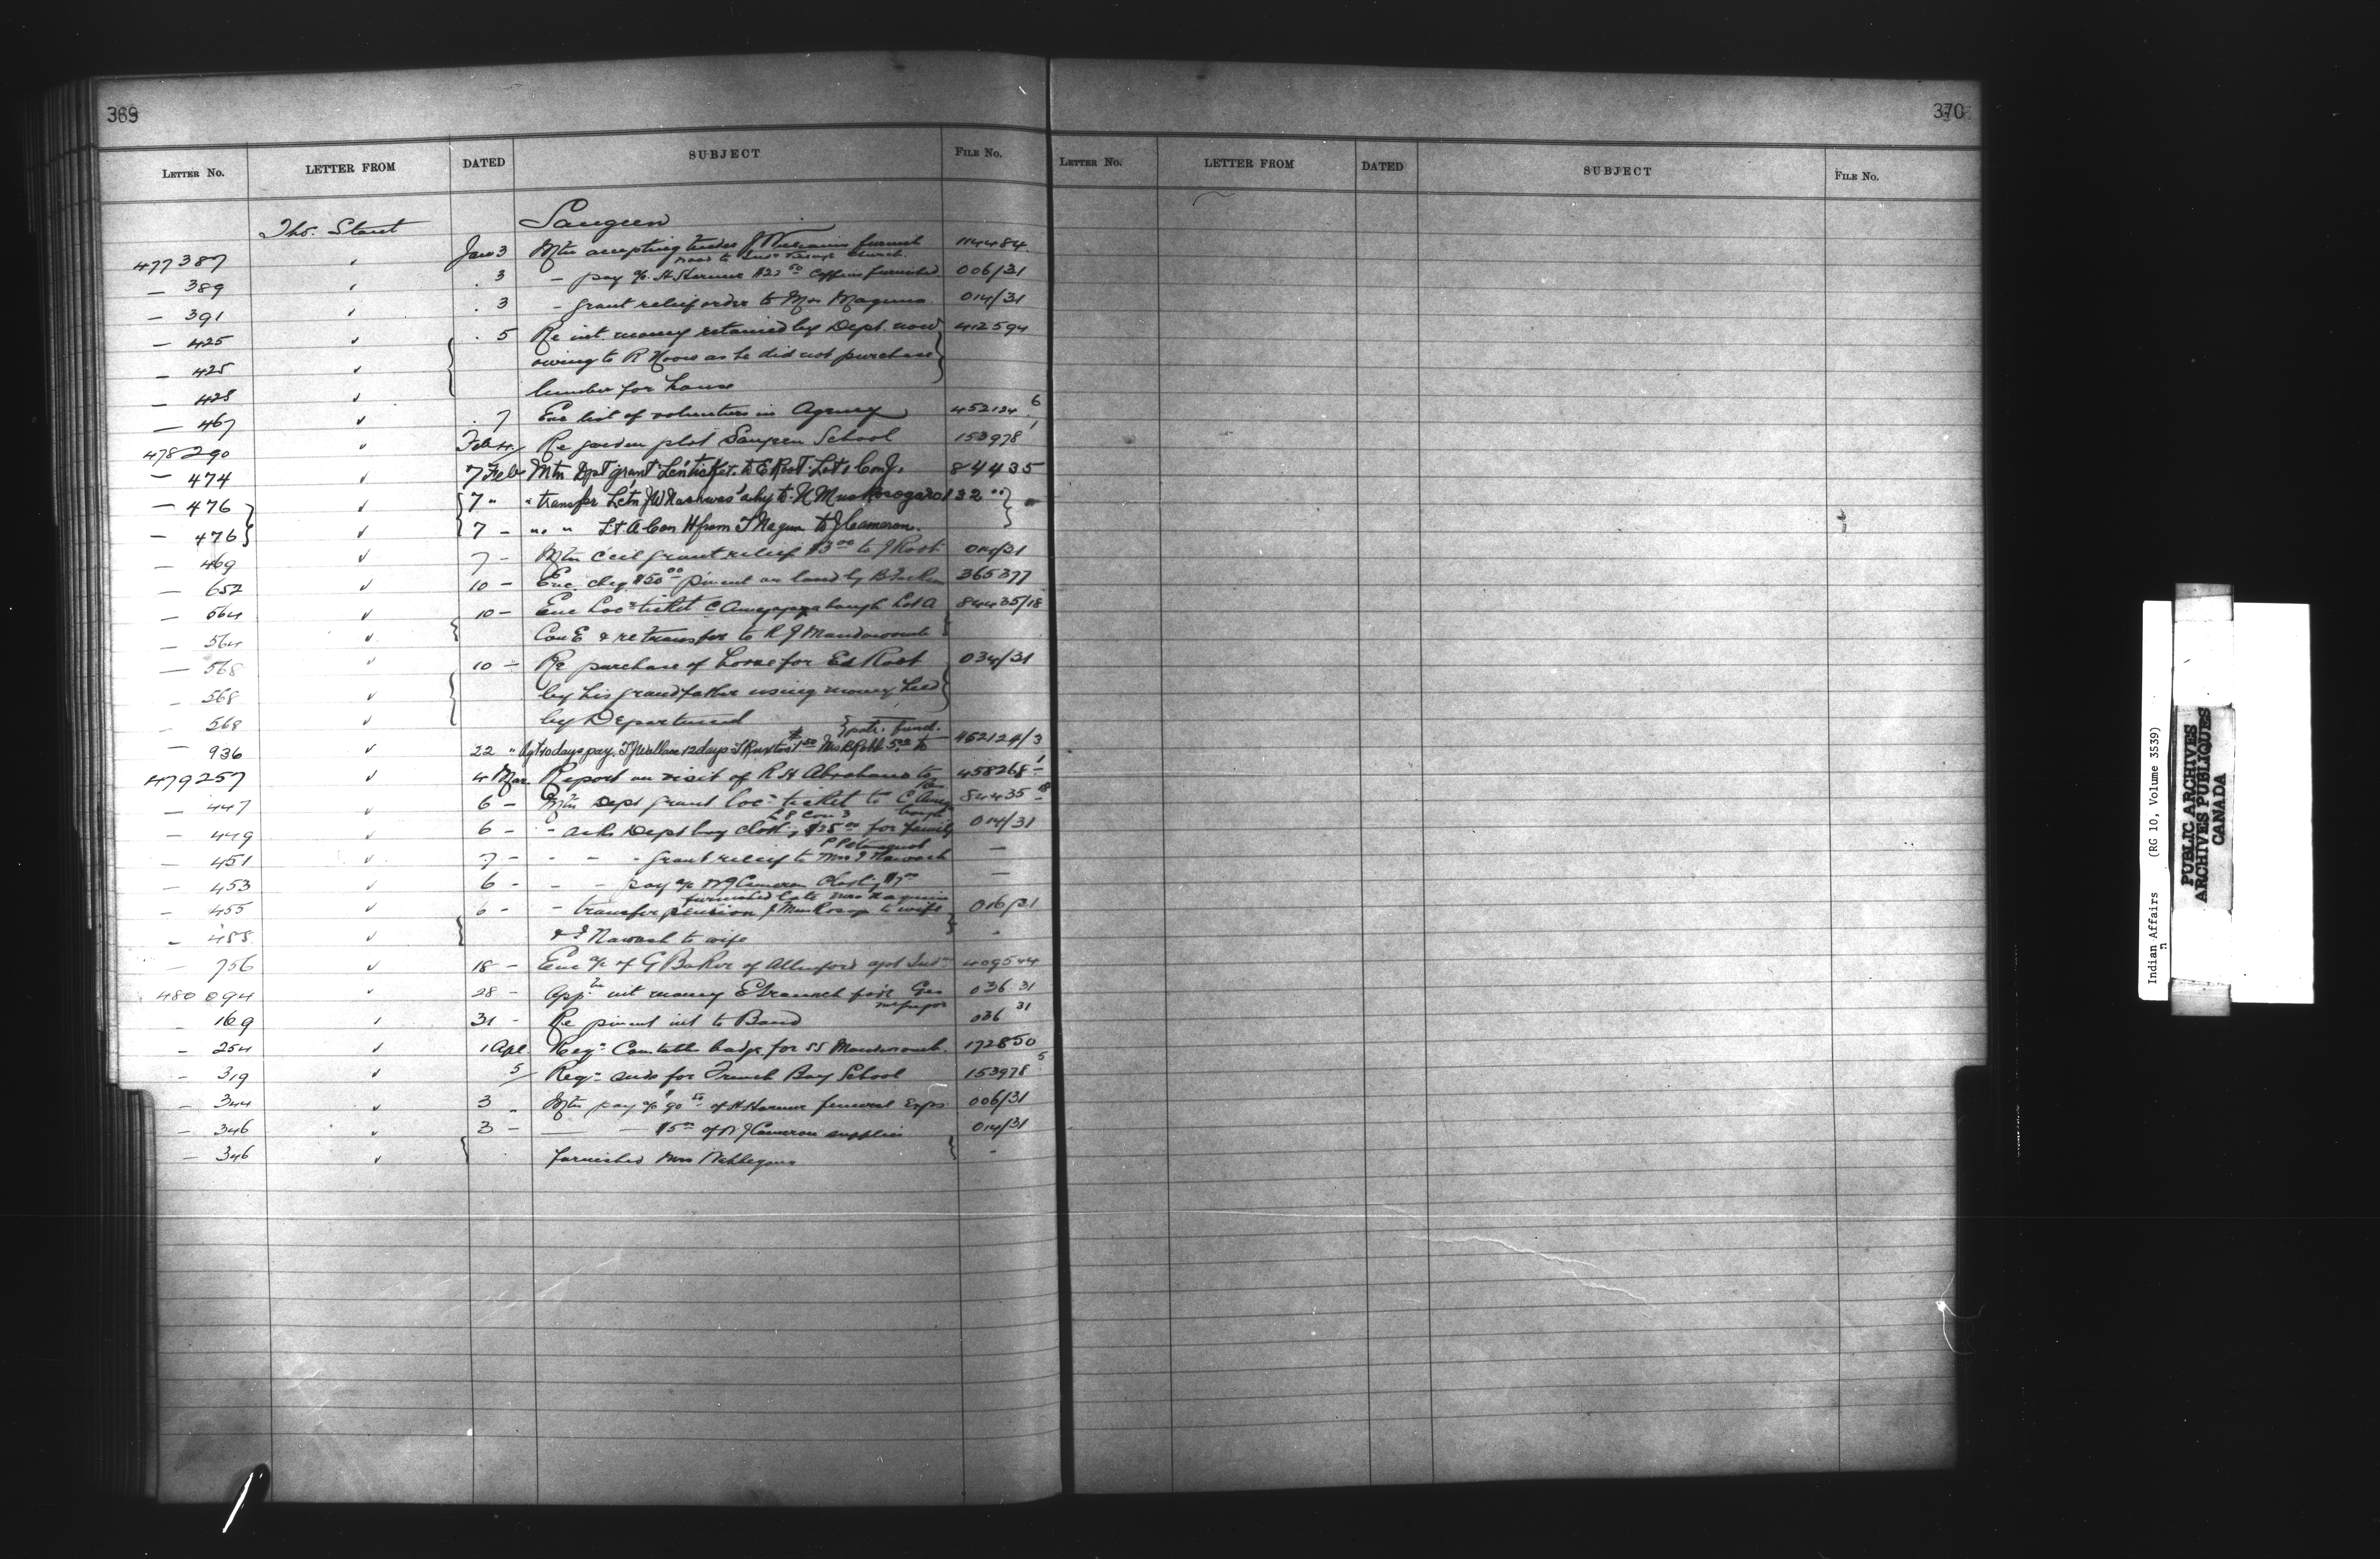 369
LETTER No. LETTER FROM DATED SUBJECT FILE No.
Tho. Stout Saugeen
477387 " Jan 3 Mtn accepting tender J Williams furnish 114484
wood to church
— 389 " . 3 — pay a/c H Harmer $23 50 Coffins furnished 006/31
— 391 " . 3 — grant relief order to Mrs 014/31
— 425 " . 5 Re int. money retained by Dept. now 412594
— 425 " owing to R as he did not purchase
— 428 " lumber for house
— 467 " . 7 Enc list of volunteers in Agency 452124 6
478290 " Feb 4 Re garden plot Saugeen School 153978 1
— 474 " 7 Feb Mtn Dpt grant Lcn ticket to E Root Lot 1 Con J. 84435
— 476 " 7 " " transfer Lctn J W to N 132
— 476 " 7 — " " Lt A Con H from T to J Cameron.
— 469 " 7 — Mtn Ccil grant relief $3 00 to J Root
— 652 " 10 — Enc chq $50 00 pment on land by B 365377
— 564 " 10 — Enc Loc n ticket C Lot A 84435/18
— 564 " Con E & re transfer to R J
— 568 " 10 — Re purchase of horse for Ed Root 034/31
— 568 " by his grandfather using money held
— 568 " by Department
patr. fund.
— 936 " 22 " Agt 10 days pay. T J Wallace 12 days Mrs R Robb 5.00 to 452124/3
479257 " 4 Mar Report on visit of R H Abrahams to 458268 1
— 447 " 6 — Mtn Dept grant Loc n ticket to C 84435 18
L 8 Con 3
— 449 " 6 — — asks Dept buy clothing $35 00 for family 014/31
— 451 " 7 — — — — grant relief to Mrs J Nawash —
— 453 " 6 — — — pay a/c N J Cameron —
furnished late Mrs
— 455 " 6 — — transfer pension J to wife 016/31
— 455 " & J Nawash to wife "
— 756 " 18 — Enc a/c of G Baker of Allenford agst Ind ns 409544
480094 " 28 — App n int money E for Geo 036 31
— 169 " 31 — Re pment int to Band 036 31
— 254 " 1 Apl. Req n Constable badge for SS 172850
— 319 " 5 Req n seeds for French Bay School 153978 5
— 344 " 3 " Mtn pay a/c $90 of H Harmer funeral Exps 006/31
— 346 " 3 — — — $5 00 of N J Cameron supplies 014/31
— 346 " furnished Mrs "
370
LETTER No. LETTER FROM DATED SUBJECT FILE No.
Indian Affairs (RG 10, Volume 3539)
PUBLIC ARCHIVES
ARCHIVES PUBLIQUES
CANADA